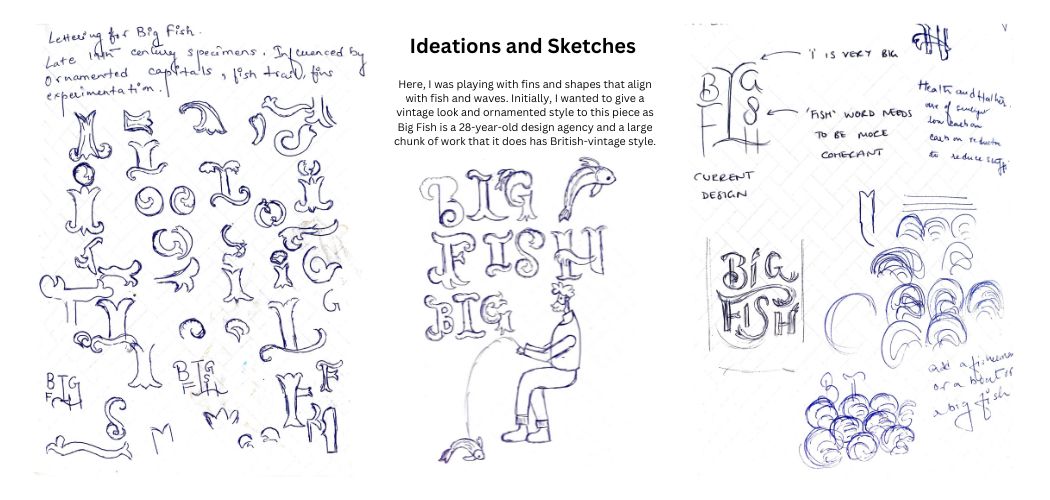 Lettering for Big Fish.
Late 19th century specimens. Influenced by
ornamented capitals, fish trail, fins
experimentation.
B I G
F
B I G
F
S
G
F
F
Ideations and Sketches
Here, I was playing with fins and shapes that align
with fish and waves. Initially, I wanted to give a
vintage look and ornamented style to this piece as
Big Fish is a 28-year-old design agency and a large
chunk of work that it does has British-vintage style.
BIG
FISH
BIG
'I' IS VERY BIG
B I G
F I S H
'FISH' WORD NEEDS
TO BE MORE
COHERANT
CURRENT
DESIGN
Health and
use of
low carbon
carbon
to reduce
BiG
FISH
add a fisherman
or a boat or
a big fish
B I